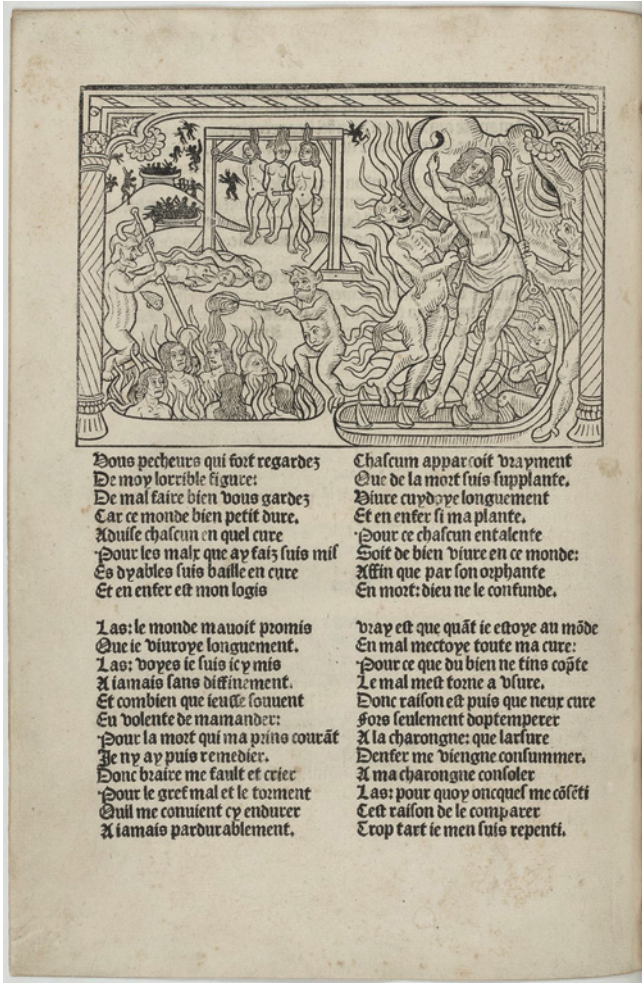 Vous pecheurs qui fort regardez
De moy lorrible figure:
De mal faire bien vous gardez
Car ce monde bien petit dure.
Aduise chascun en quel cure
Pour les malx que ay faiz suis mis
Es dyables suis baille en cure
Et en enfer est mon logis
Las: le monde mauoit promis
Que ie viuroye longuement.
Las: voyes ie suis icy mis
A iamais sans diffinement.
Et combien que ieusse souuent
Eu volente de mamander:
Pour la mort qui ma prins courãt
Je ny ay puis remedier.
Donc braire me fault et crier
Pour le gref mal et le torment
Quil me conuient cy endurer
A iamais pardurablement.
Chascum apparcoit vrayment
Que de la mort suis supplante.
Viure cuydoye longuement
Et en enfer si ma plante.
Pour ce chascun entalente
Soit de bien viure en ce monde:
Affin que par son orphante
En mort: dieu ne le confunde.
vray est que quãt ie estoye au mõde
En mal mectoye toute ma cure:
Pour ce que du bien ne tins cõpte
Le mal mest torne a vsure.
Donc raison est puis que neux cure
Fors seulement doptemperer
A la charongne: que larsure
Denfer me viengne consummer.
A ma charongne consoler
Las: pour quoy oncques me cõsẽti
Cest raison de le comparer
Trop tart ie men suis repenti.